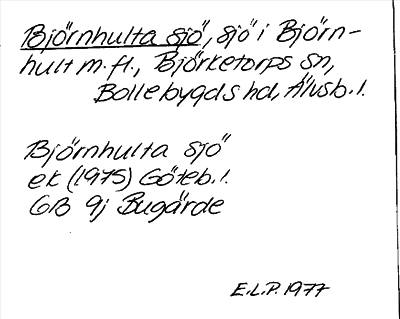 Björnhulta sjö, sjö i Björn-
hult m.fl., Björketorps sn,
Bollebygds hd, Älvsb. l.
Björnhulta sjö
ek (1975) Göteb. l.
6B 9j Bugärde
E.L.P. 1977